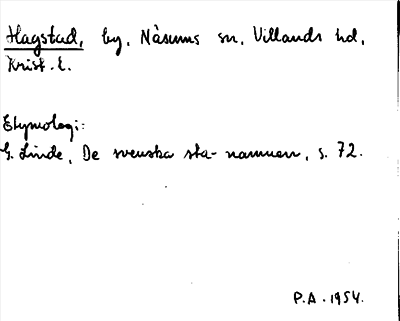 Hagstad, by, Näsums sn, Villands hd,
Krist. l.
Etymologi:
G. Linde, De svenska sta-namnen, s. 72.
P.A. 1954.